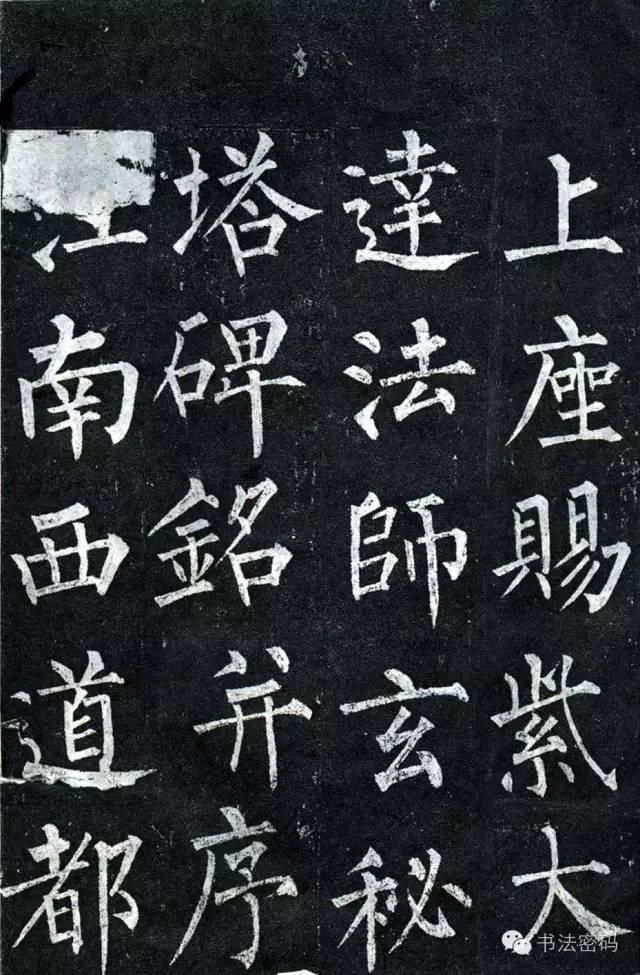 上座賜紫大
達法師玄秘
塔碑銘并序
江南西道都
书法密码